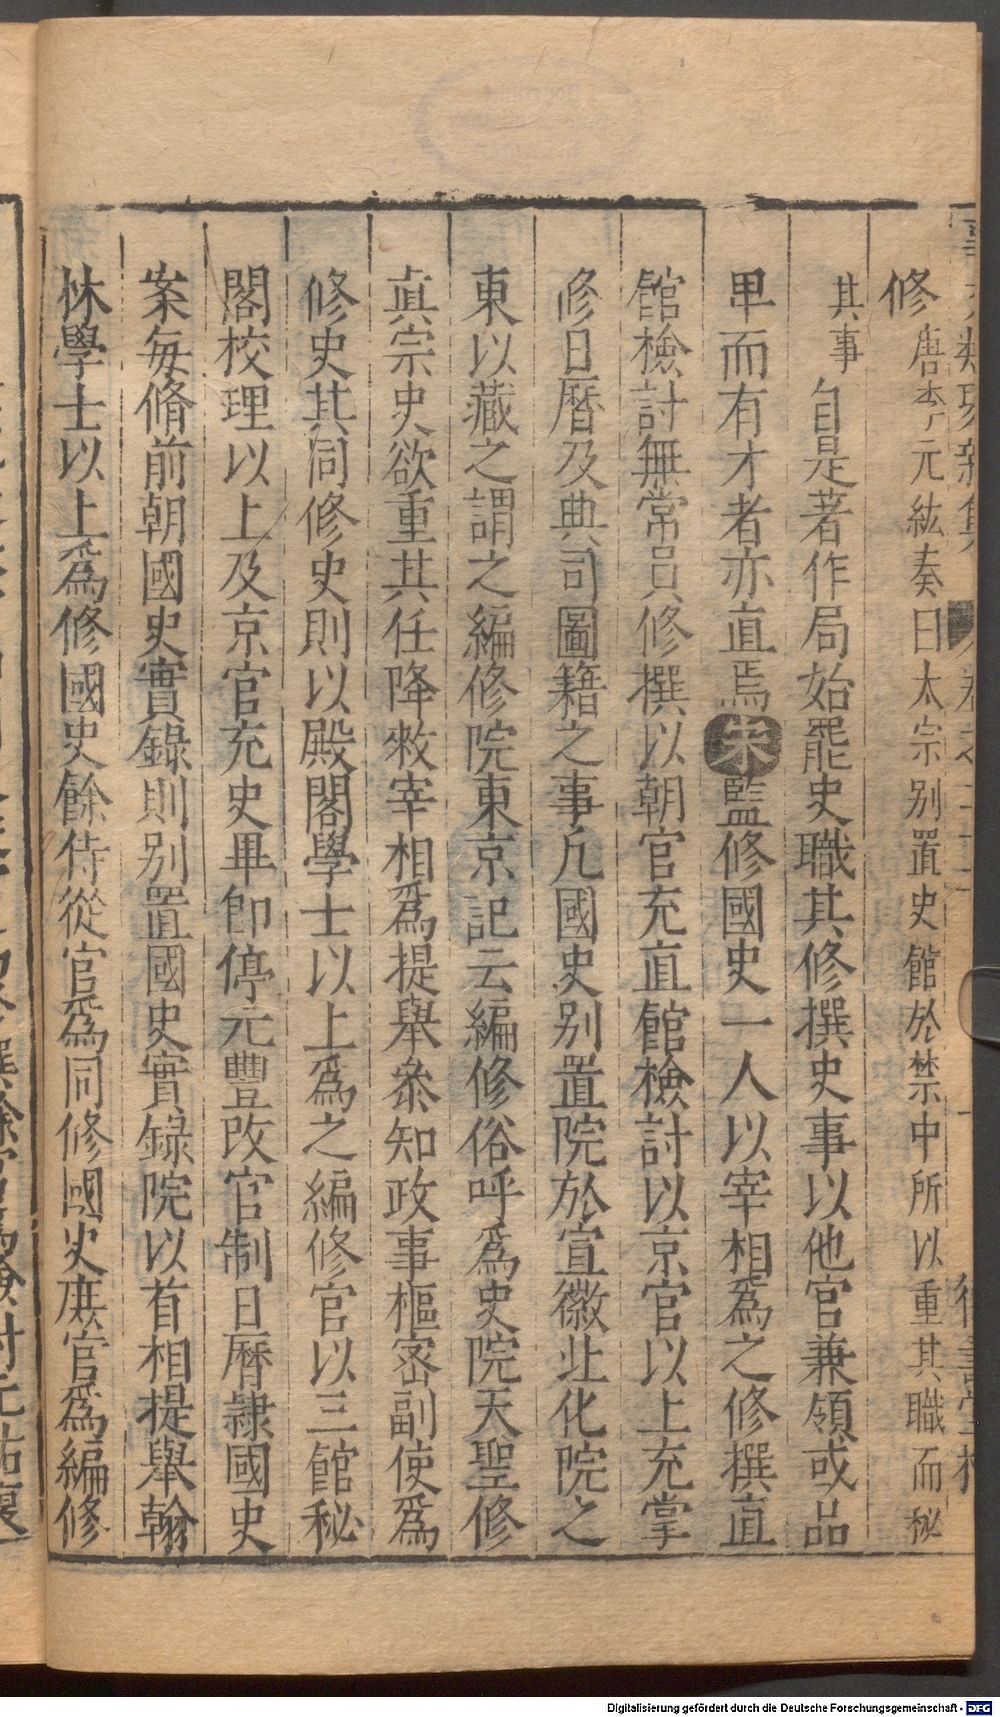 修唐李元紘奏曰太宗别置史館於禁中所以重其職而秘
其事自是著作局始罷史職其修撰史事以他官兼領或品
甲而有才者亦直焉宋監修國史一人以宰相爲之修撰直
館檢討無常員修撰以朝官充直館檢討以京官以上充掌
修日曆及典司圖籍之事凡國史别置院於宣徽北化院之
東以藏之謂之編修院東京記云編修俗呼爲史院天聖修
眞宗史欲重其任降敕宰相爲提舉叅知政事樞密副使爲
修史其同修史則以殿閣學士以上爲之編修官以三館秘
閣校理以上及京官充史畢卽停元豐改官制日曆隷國史
案每脩前朝國史實錄則别置國史實録院以首相提舉翰
林學士以上爲修國史餘侍從官爲同修國史庶官爲編修
Digitalisierung gefördert durch die Deutsche Forschungsgemeinschaft - DFG